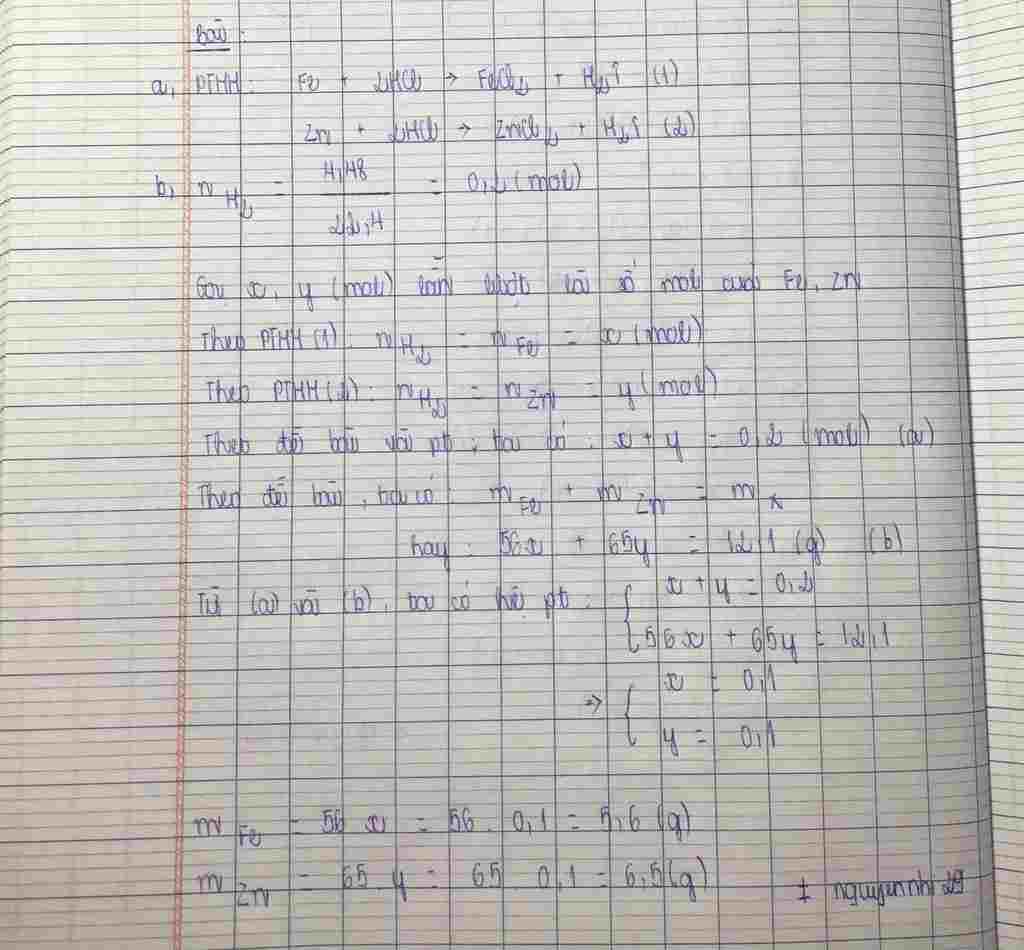 Bài:
a, PTHH: Fe + 2HCl → FeCl₂ + H₂↑ (1)
Zn + 2HCl → ZnCl₂ + H₂↑ (2)
b, n H₂ = 4,48 / 22,4 = 0,2 (mol)
Gọi x, y (mol) lần lượt là số mol của Fe, Zn
Theo PTHH (1): n H₂ = n Fe = x (mol)
Theo PTHH (2): n H₂ = n Zn = y (mol)
Theo đề bài và pt, ta có: x + y = 0,2 (mol) (a)
Theo đề bài, ta có: m Fe + m Zn = m x
hay: 56x + 65y = 12,1 (g) (b)
Từ (a) và (b), ta có hệ pt: { x + y = 0,2
56x + 65y = 12,1
=> { x = 0,1
y = 0,1
m Fe = 56 x = 56 . 0,1 = 5,6 (g)
m Zn = 65 . y = 65 0,1 = 6,5 (g)
nguyennhi29